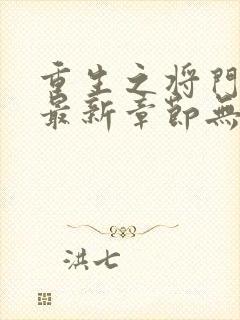 重生之将门
最新章节无
洪七